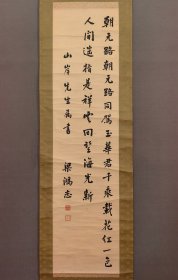 朝元路朝元路同駕玉華君千乘載花紅一色
人間遥指是祥雲回望海光新
山岸先生属書
梁鴻志